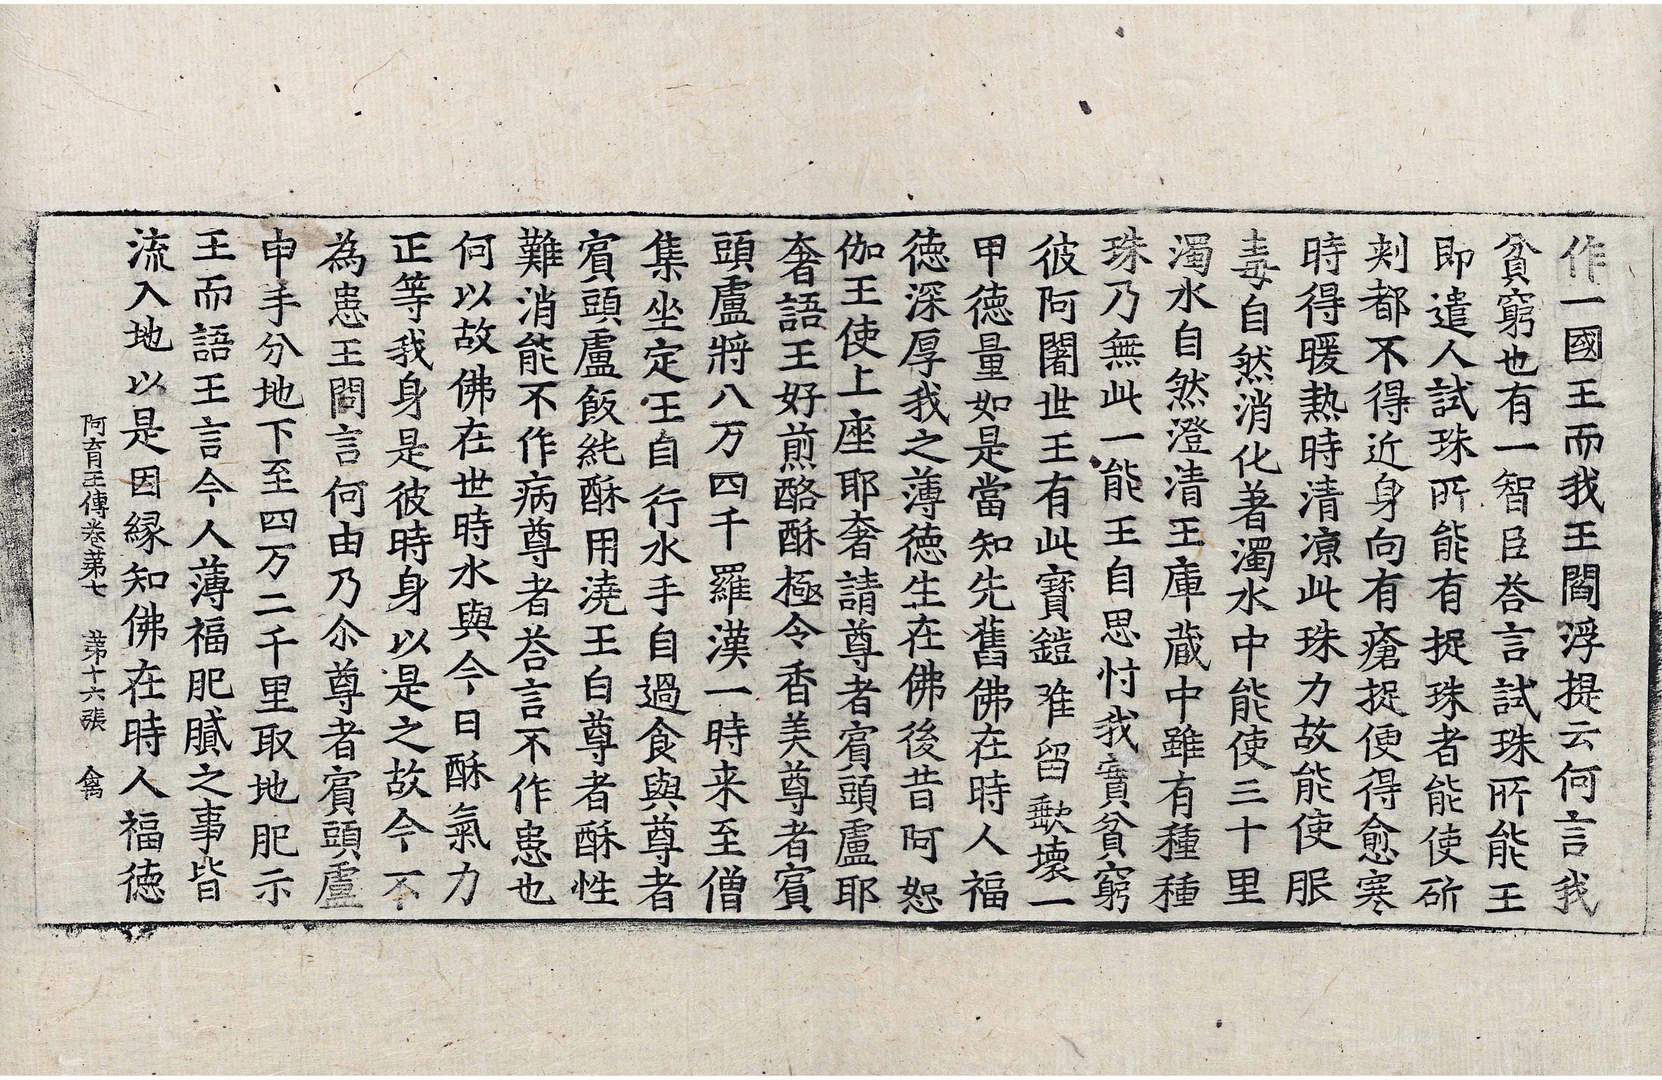 作一國王而我王閻浮提云何言我
貧窮也有一智臣荅言試珠所能王
即遣人試珠所能有捉珠者能使斫
刾都不得近身向有瘡捉便得愈寒
時得暖熱時清凉此珠力故能使服
毒自然消化著濁水中能使三十里
濁水自然澄清王庫蔵中雖有種種
珠乃無此一能王自思忖我實貧窮
彼阿闍世王有此寳鎧唯留歎壞一
甲徳量如是當知先舊佛在時人福
徳深厚我之薄徳生在佛後昔阿恕
伽王使上座耶奢請尊者賓頭盧耶
奢語王好煎酪酥極令香美尊者賓
頭盧將八万四千羅漢一時来至僧
集坐定王自行水手自過食與尊者
賓頭盧飯純酥用澆王白尊者酥性
難消能不作病尊者荅言不作患也
何以故佛在世時水與今日酥氣力
正等我身是彼時身以是之故今不
為患王問言何由乃尒尊者賓頭盧
申手分地下至四万二千里取地肥示
王而語王言今人薄福肥膩之事皆
流入地以是因縁知佛在時人福徳
阿育王傳卷苐七 苐十六張 禽